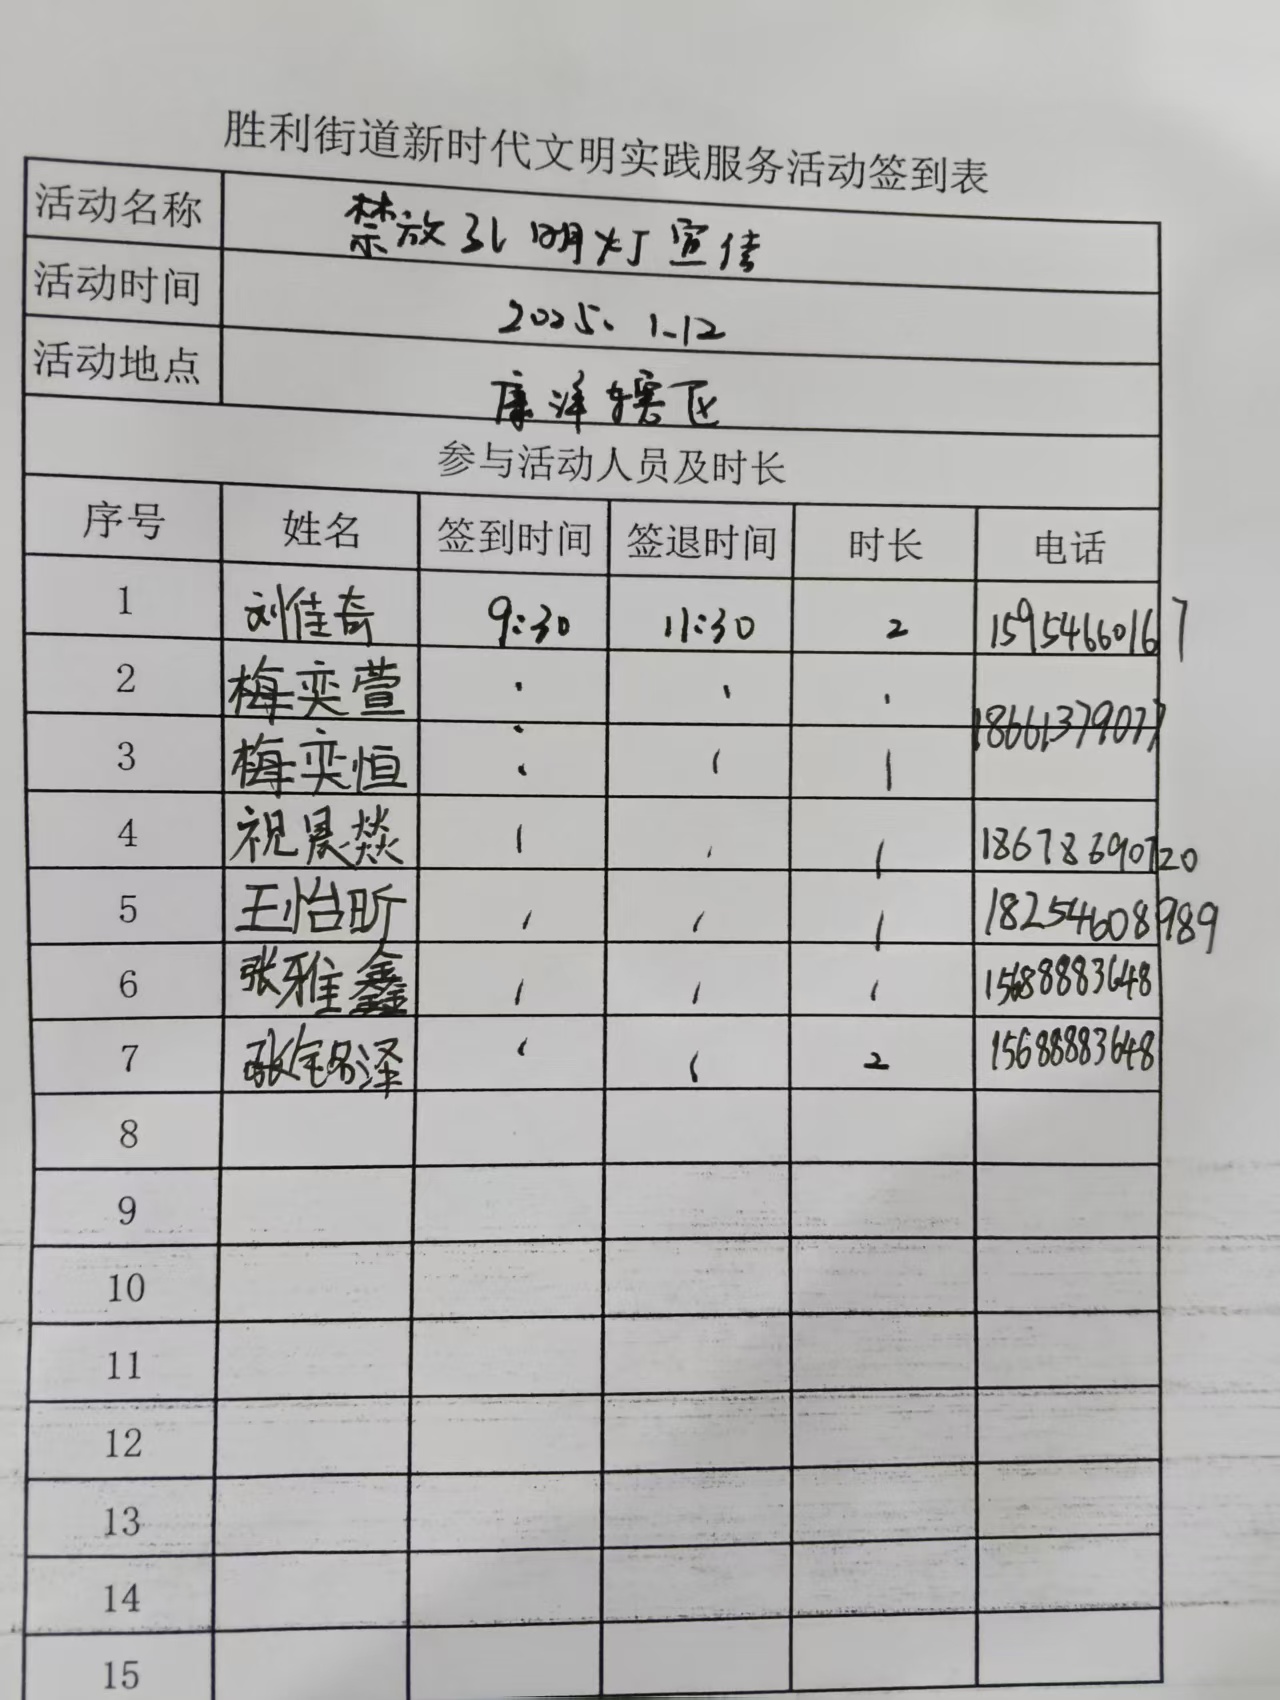 胜利街道新时代文明实践服务活动签到表
活动名称 禁放孔明灯宣传
活动时间 2025.1.12
活动地点 康洋辖区
参与活动人员及时长
序号 姓名 签到时间 签退时间 时长 电话
1 刘佳奇 9:30 11:30 2 15954660167
2 梅奕萱 18661379077
3 梅奕恒
4 祝晨燚 18678690720
5 王怡昕 18254608989
6 张雅鑫 15688883648
7 2 15688883648
8
9
10
11
12
13
14
15